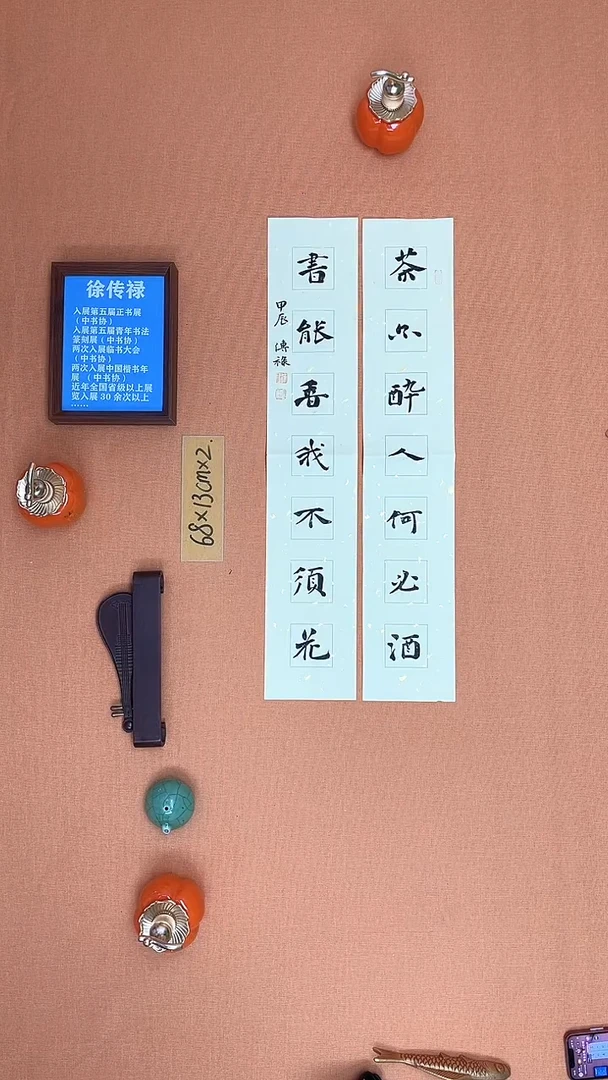 茶亦醉人何必酒
書能香我不須花
甲辰 傳祿
徐传禄
入展第五届正书展
（中书协）
入展第五届青年书法
篆刻展（中书协）
两次入展临书大会
（中书协）
两次入展中国楷书年
展（中书协）
近年全国省级以上展
览入展 30 余次以上
......
68×13cm×2.